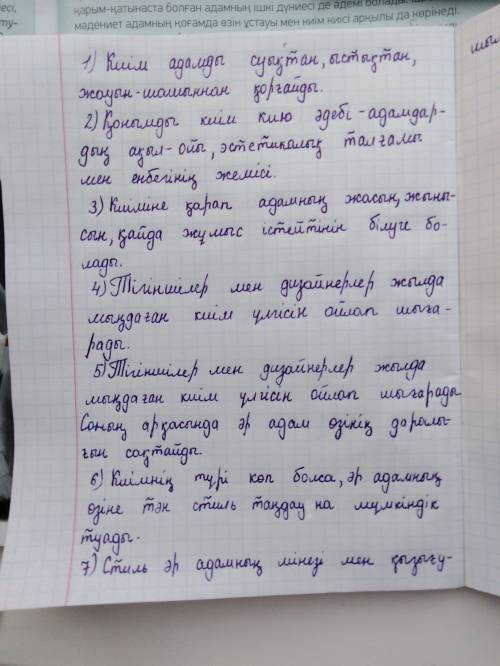 есі,
ту-
қарым-қатынаста болған адамның ішкі дүниесі де әдемі болады.
мәдениет адамның қоғамда өзін ұстауы мен киім киісі арқылы да көрінеді.
шыл
1) Киім адамды суықтан, ыстықтан,
жауын-шашыннан қорғайды.
2) Қонымды киім кию әдебі - адамдар-
дың ақыл-ойы, эстетикалық талғамы
мен еңбегінің жемісі.
3) Киіміне қарап адамның жасын, жыны-
сын, қайда жұмыс істейтінін білуге бо-
лады.
4) Тігіншілер мен дизайнерлер жылда
мыңдаған киім үлгісін ойлап шыға-
рады.
5) Тігіншілер мен дизайнерлер жылда
мыңдаған киім үлгісін ойлап шығарады
Соның арқасында әр адам өзінің даралы-
ғын сақтайды.
6) Киімнің түрі көп болса, әр адамның
өзіне тән стиль таңдауына мүмкіндік
туады.
7) Стиль әр адамның мінезі мен қызығу-